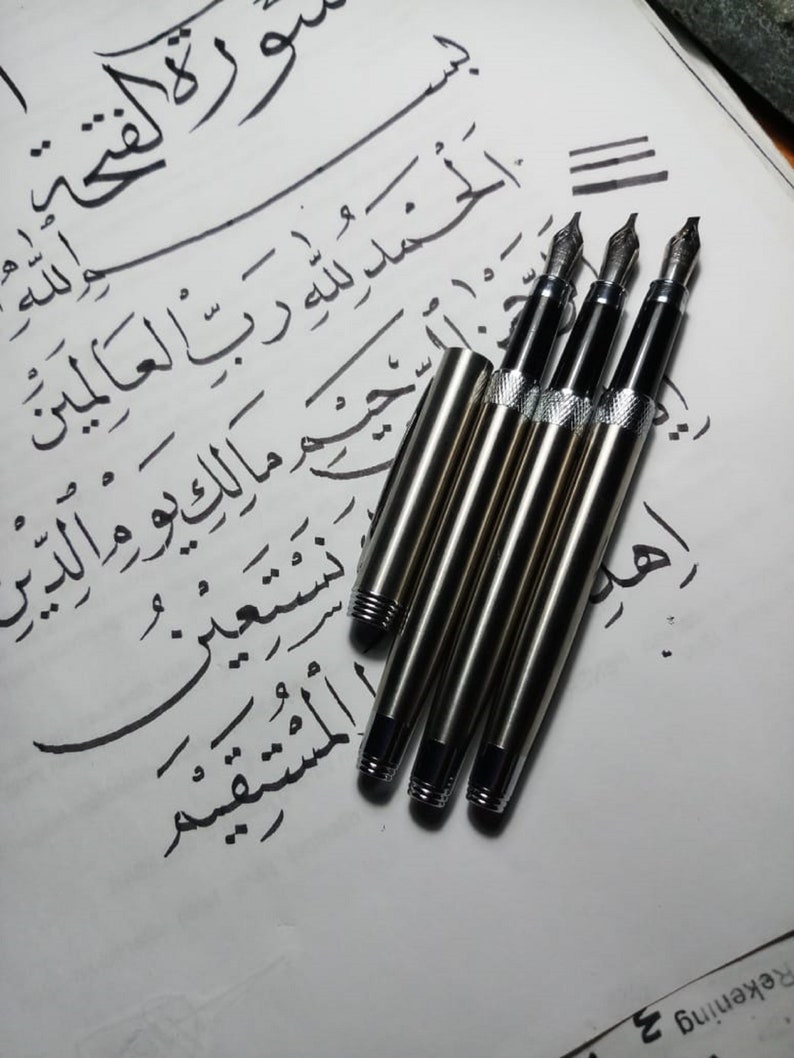 سورة الفتحة
بسم اللهِ
اَلْحَمْدُ لِلّٰهِ رَبِّ الْعَالَمِيْنَ
الرَّحِيْمِ مَالِكِ يَوْمِ الدِّيْنِ
نَسْتَعِيْنُ
الْمُسْتَقِيْمَ
Rekening
3